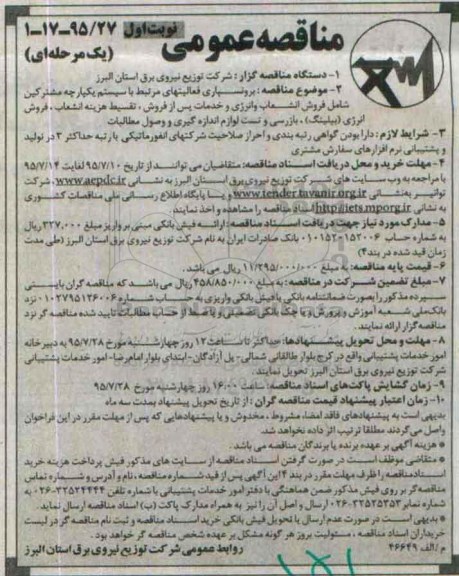 مناقصه عمومی نوبت اول ۹۵/۲۷-۱۷-۱
(یک مرحله‌ای)
۱- دستگاه مناقصه گزار: شرکت توزیع نیروی برق استان البرز
۲- موضوع مناقصه: برونسپاری فعالیتهای مرتبط با سیستم یکپارچه مشترکین
شامل فروش انشعاب وانرژی و خدمات پس از فروش، تقسیط هزینه انشعاب، فروش
انرژی (بیلینگ)، بازرسی و تست لوازم اندازه گیری و وصول مطالبات
۳- شرایط لازم: دارا بودن گواهی رتبه بندی و احراز صلاحیت شرکتهای انفورماتیکی با رتبه حداکثر ۳ در تولید
و پشتیبانی نرم افزارهای سفارش مشتری
۴- مهلت خرید و محل دریافت اسناد مناقصه: متقاضیان می توانند از تاریخ ۹۵/۷/۱۰ لغایت ۹۵/۷/۱۴
با مراجعه به وب سایت های شرکت توزیع نیروی برق استان البرز به نشانی www.aepdc.ir، شرکت
توانیر به نشانی www.tender.tavanir.org.ir و یا پایگاه اطلاع رسانی ملی مناقصات کشوری
به نشانی http://iets.mporg.ir اسناد مناقصه را مشاهده و اخذ نمایند.
۵- مدارک مورد نیاز جهت دریافت اسناد مناقصه: ارائه فیش بانکی مبنی بر واریز مبلغ ۲۲۷،۰۰۰ ریال
به شماره حساب ۰۱۰۱۵۲۰۱۵۲۰۰۶ بانک صادرات ایران به نام شرکت توزیع نیروی برق استان البرز (طی مدت
زمان قید شده در بند ۴)
۶- قیمت پایه مناقصه: به مبلغ ۱۱/۲۹۵/۰۰۰/۰۰۰ ریال می باشد.
۷- مبلغ تضمین شرکت در مناقصه: به مبلغ ۴۵۸/۸۵۰/۰۰۰ ریال می باشد که مناقصه گران بایستی
سپرده مذکور را بصورت ضمانتنامه بانکی یا فیش بانکی واریزی به حساب شماره ۰۱۰۲۷۹۵۱۲۶۰۰۶ نزد
بانک ملی شعبه آموزش و پرورش و یا چک بانکی تضمینی و یا ضبط از حساب مطالبات تایید شده مناقصه گر نزد
مناقصه گزار ارائه نمایند.
۸- مهلت و محل تحویل پیشنهادها: حداکثر تا ساعت ۱۲ روز چهارشنبه مورخ ۹۵/۷/۲۸ به دبیرخانه
امور خدمات پشتیبانی واقع در کرج بلوار طالقانی شمالی- پل آزادگان- ابتدای بلوار امام رضا- امور خدمات پشتیبانی
شرکت توزیع نیروی برق استان البرز تحویل نمایند.
۹- زمان گشایش پاکت‌های اسناد مناقصه: ساعت ۱۶:۰۰ روز چهارشنبه مورخ ۹۵/۷/۲۸
۱۰- زمان اعتبار پیشنهاد قیمت مناقصه گران: از تاریخ تحویل پیشنهاد بمدت سه ماه
بدیهی است به پیشنهادهای فاقد امضا، مشروط، مخدوش و یا پیشنهادهایی که پس از مهلت مقرر در این فراخوان
واصل می گردند مطلقا ترتیب اثر داده نخواهد شد.
* هزینه آگهی بر عهده برنده یا برندگان مناقصه می باشد.
* متقاضی موظف است در صورت گرفتن اسناد مناقصه از سایت های مذکور فیش پرداخت هزینه خرید
اسناد مناقصه را ظرف مهلت مقرر در بند ۴ این آگهی پس از قید شماره مناقصه، نام و آدرس و شماره تماس
مناقصه گر بر روی فیش مذکور ضمن هماهنگی با دفتر امور خدمات پشتیبانی با شماره تلفن ۳۲۵۲۴۴۴۴-۰۲۶ به
شماره نمابر ۳۲۵۲۵۳۵۳-۰۲۶ ارسال و اصل آن را نیز به همراه مدارک پاکت (ب) اسناد مناقصه ارسال نماید.
* بدیهی است در صورت عدم ارسال یا تحویل فیش بانکی خرید اسناد مناقصه و ثبت نام مناقصه گر در لیست
خریداران اسناد مناقصه، مسئولیت بروز هر گونه مشکل بر عهده شخص مناقصه گر خواهد بود.
م/الف ۴۶۶۴۹ روابط عمومی شرکت توزیع نیروی برق استان البرز